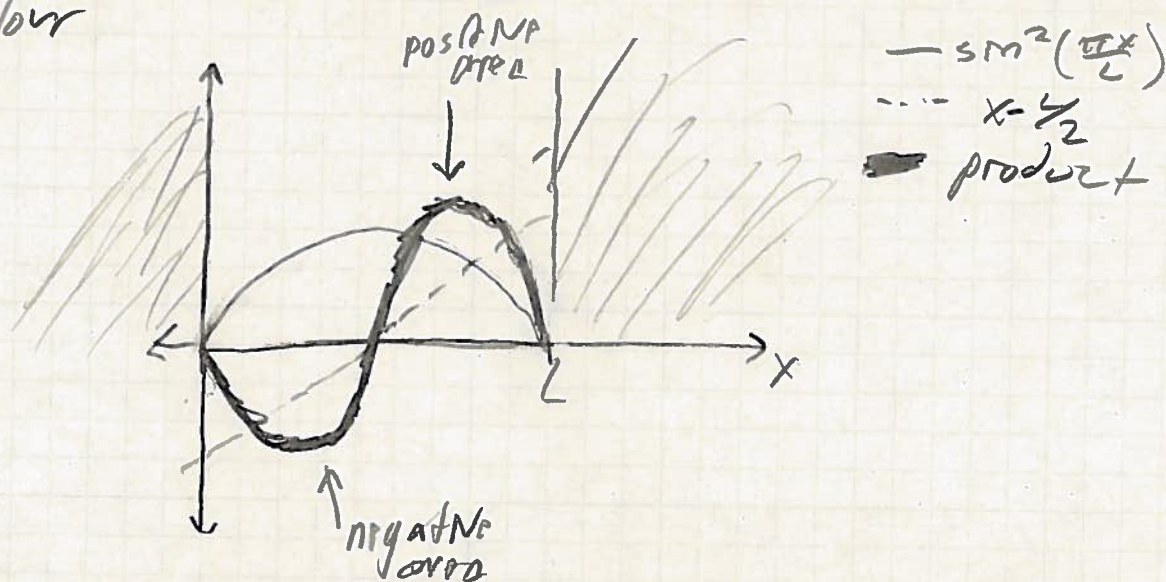 positive
area
— sin²(πx/L)
---- x-L/2
product
L
x
negative
area